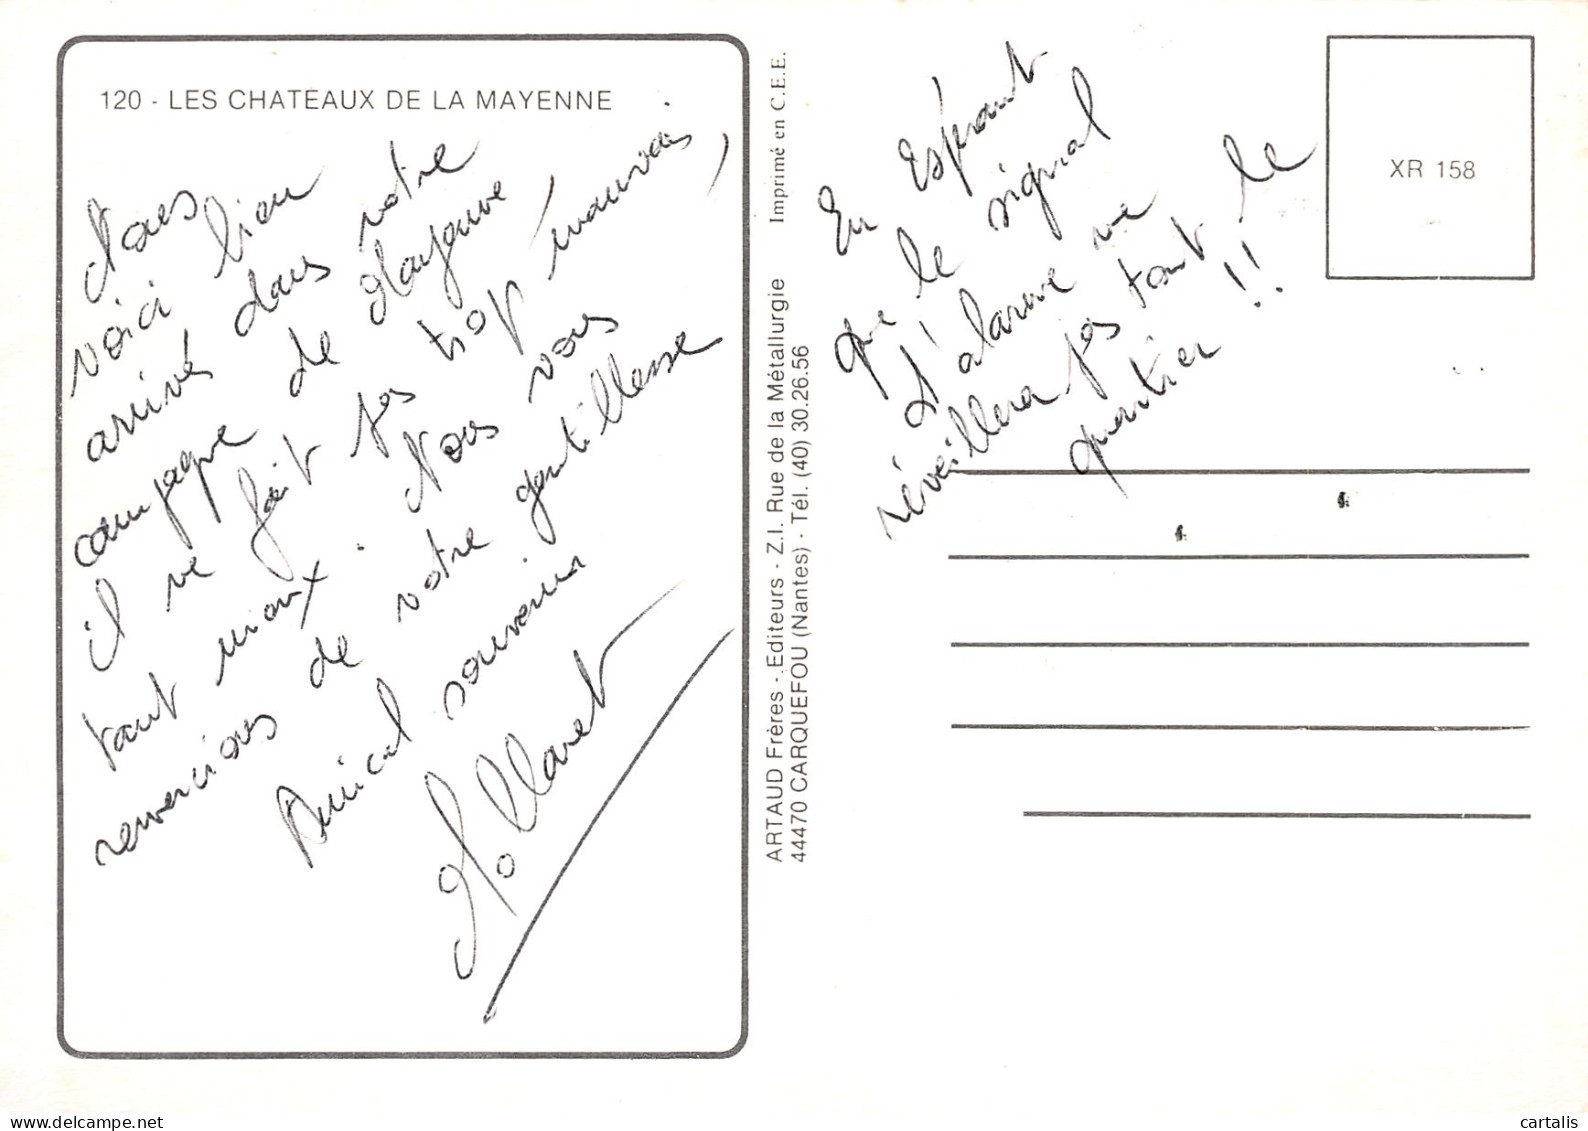 120 - LES CHATEAUX DE LA MAYENNE
Nous
voici bien
arrivés dans notre
campagne de Mayenne
il ne fait pas trop mauvais,
tant mieux. Nous vous
remercions de votre gentillesse
Amical souvenir
Mollaret
Imprimé en C.E.E.
ARTAUD Frères - Editeurs - Z.I. Rue de la Métallurgie
44470 CARQUEFOU (Nantes) - Tél. (40) 30.26.56
En Espérant
que le signal
d'alarme ne
réveillera pas tout le
quartier !!
XR 158
delcampe.net
cartalis